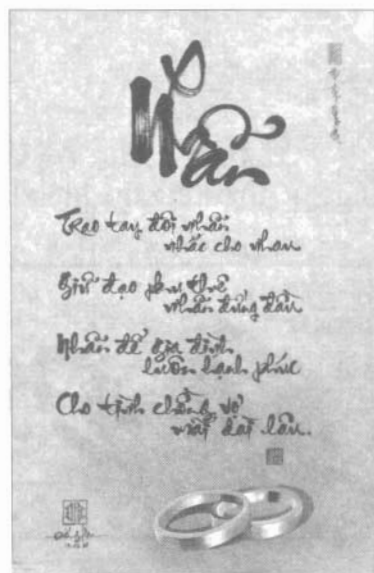 Nhẫn
Trao tay đôi nhẫn
nhắc cho nhau
Giữ đạo phu thê
nhẫn đứng đầu
Nhẫn để gia đình
luôn hạnh phúc
Cho tình chồng vợ
mãi dài lâu.